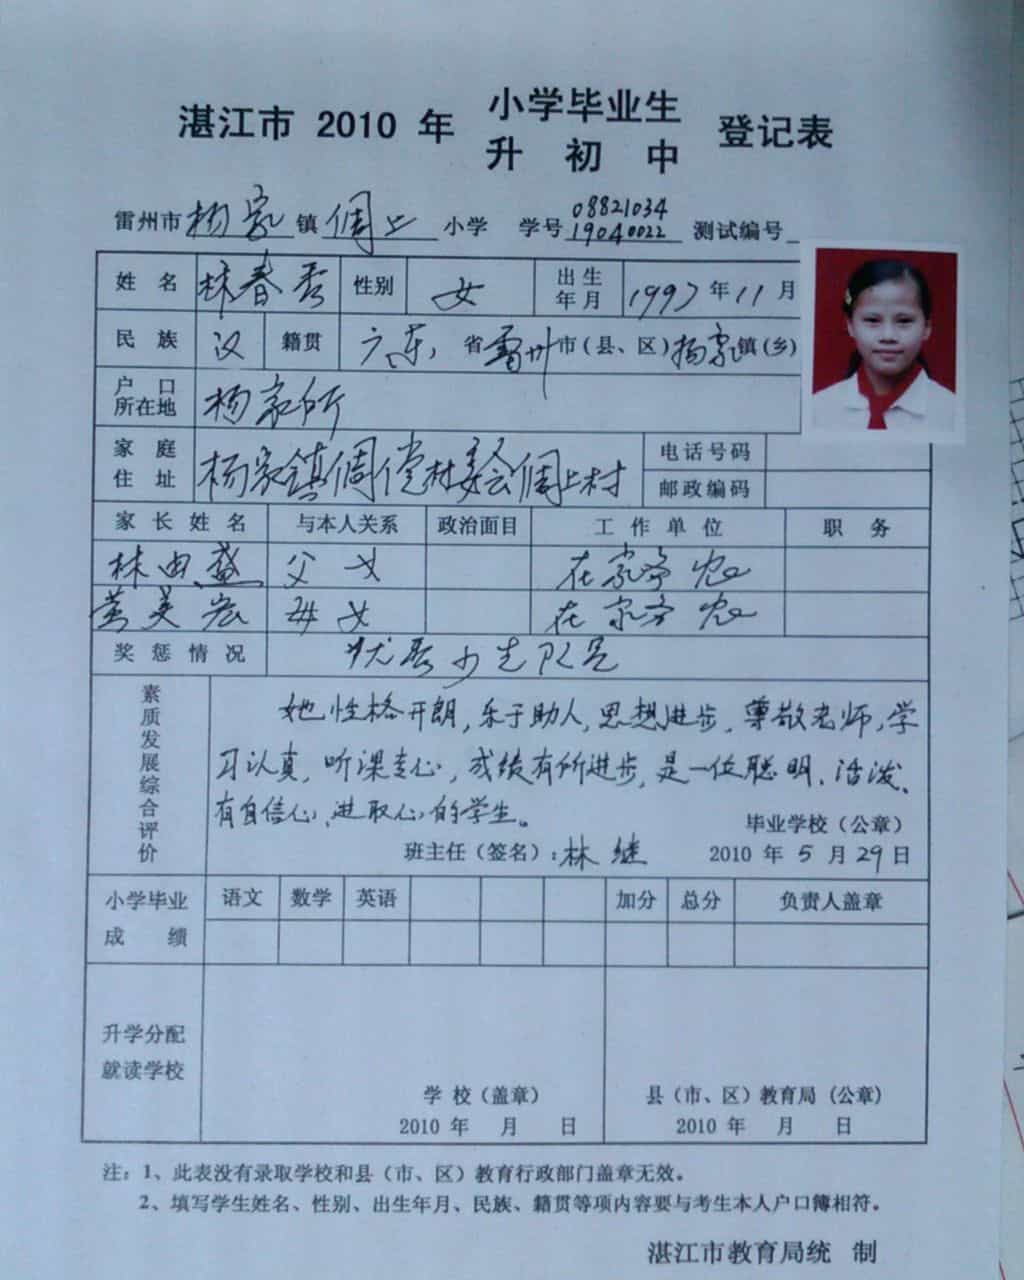 湛江市 2010 年 小学毕业生 登记表
升 初 中
雷州市 杨家 镇 倜上 小学 学号 08821034 测试编号
19040022
姓 名 林春香 性别 女 出生年月 1997 年 11 月
民 族 汉 籍贯 广东 省 雷州 市(县、区) 杨家 镇(乡)
户 口 所在地 杨家所
家 庭 住 址 杨家镇倜党村委会倜上村 电话号码
邮政编码
家 长 姓 名 与本人关系 政治面目 工 作 单 位 职 务
林由盛 父女 在家务农
黄美宏 母女 在家务农
奖 惩 情 况 优秀少先队员
素质发展综合评价
她性格开朗,乐于助人,思想进步,尊敬老师,学
习认真,听课专心,成绩有所进步,是一位聪明、活泼、
有自信心、进取心的学生。
毕业学校(公章)
班主任(签名):林继 2010 年 5 月 29 日
小学毕业 语文 数学 英语 加分 总分 负责人盖章
成 绩
升学分配
就读学校
学 校(盖章) 县(市、区)教育局(公章)
2010 年 月 日 2010 年 月 日
注:1、此表没有录取学校和县(市、区)教育行政部门盖章无效。
2、填写学生姓名、性别、出生年月、民族、籍贯等项内容要与考生本人户口簿相符。
湛江市教育局统 制